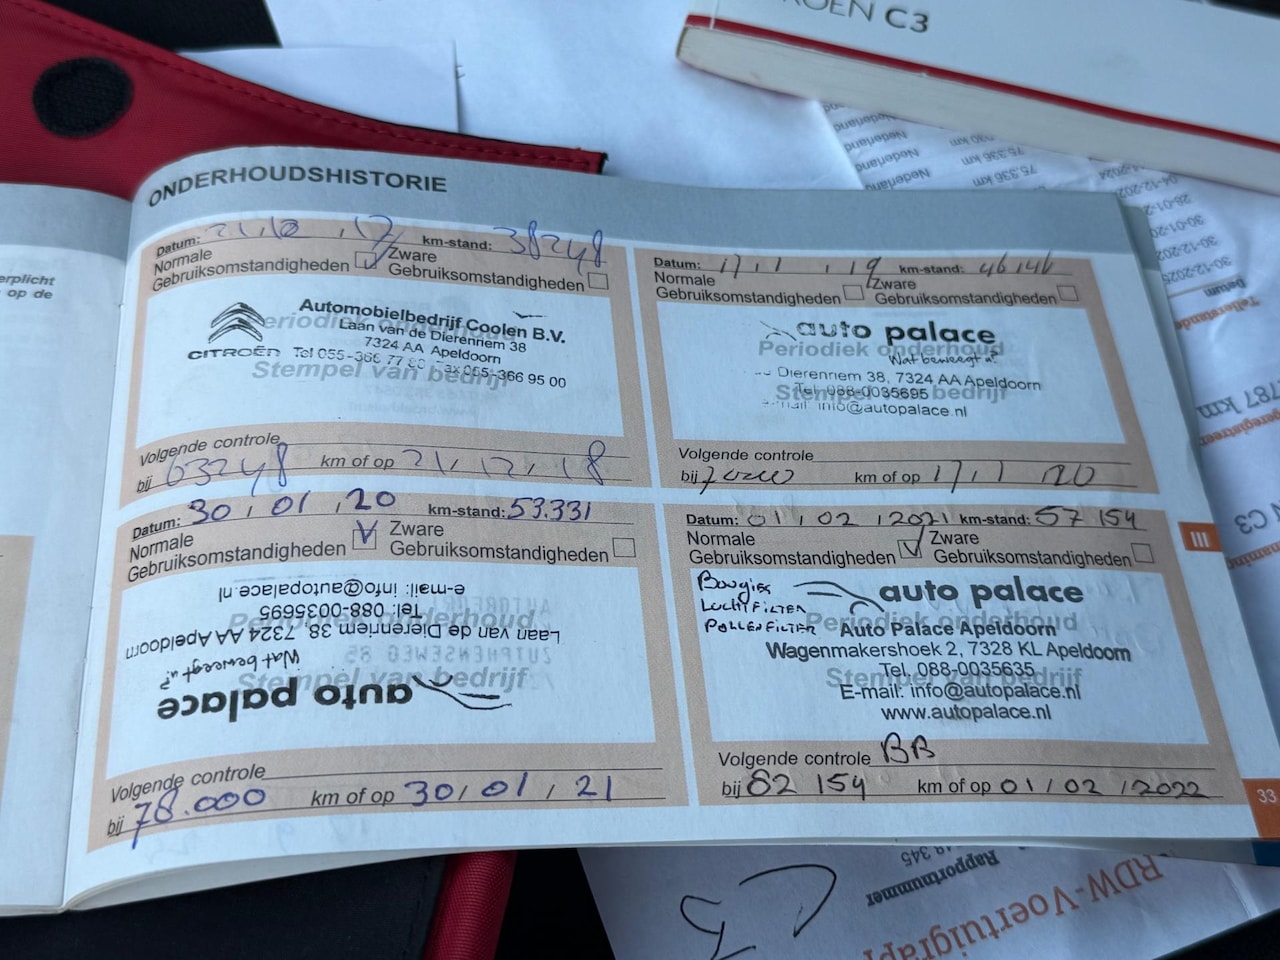 C3
ONDERHOUDSHISTORIE
erplicht
op de
Datum: 21, 12, 17 km-stand: 38248
Normale Gebruiksomstandigheden
Zware Gebruiksomstandigheden
Automobielbedrijf Coolen B.V.
Laan van de Dierennem 38
7324 AA Apeldoorn
CITROËN Tel 055-366 77
055-366 95 00
Periodiek onderhoud
Stempel van bedrijf
Volgende controle
bij 63248 km of op 21, 12, 18
Datum: 17, 1, 19 km-stand: 46146
Normale Gebruiksomstandigheden
Zware Gebruiksomstandigheden
auto palace
Periodiek onderhoud
Wat beweegt u?
Dierennem 38, 7324 AA Apeldoorn
Tel. 088-0035695
Stempel van bedrijf
info@autopalace.nl
Volgende controle
bij km of op 17, 1 20
Datum: 30, 01, 20 km-stand: 53.331
Normale Gebruiksomstandigheden
Zware Gebruiksomstandigheden
auto palace
Wat beweegt u?
Laan van de Dierenriem 38, 7324 AA Apeldoorn
Tel: 088-0035695
e-mail: info@autopalace.nl
Periodiek onderhoud
Stempel van bedrijf
Volgende controle
bij 78.000 km of op 30, 01, 21
Datum: 01, 02, 2021 km-stand: 57 154
Normale Gebruiksomstandigheden
Zware Gebruiksomstandigheden
Bougies
LuchtFILTER
POLLENFILTER
auto palace
Periodiek onderhoud
Auto Palace Apeldoorn
Wagenmakershoek 2, 7328 KL Apeldoorn
Tel. 088-0035635
Stempel van bedrijf
E-mail: info@autopalace.nl
www.autopalace.nl
Volgende controle BB
bij 82 154 km of op 01, 02, 2022
III
33
Nederland
Nederland
Nederland
75.336 km
75.336 km
30-12-2025
Datum
787 km
C3
RDW-Voertuigrap
Rapportnummer